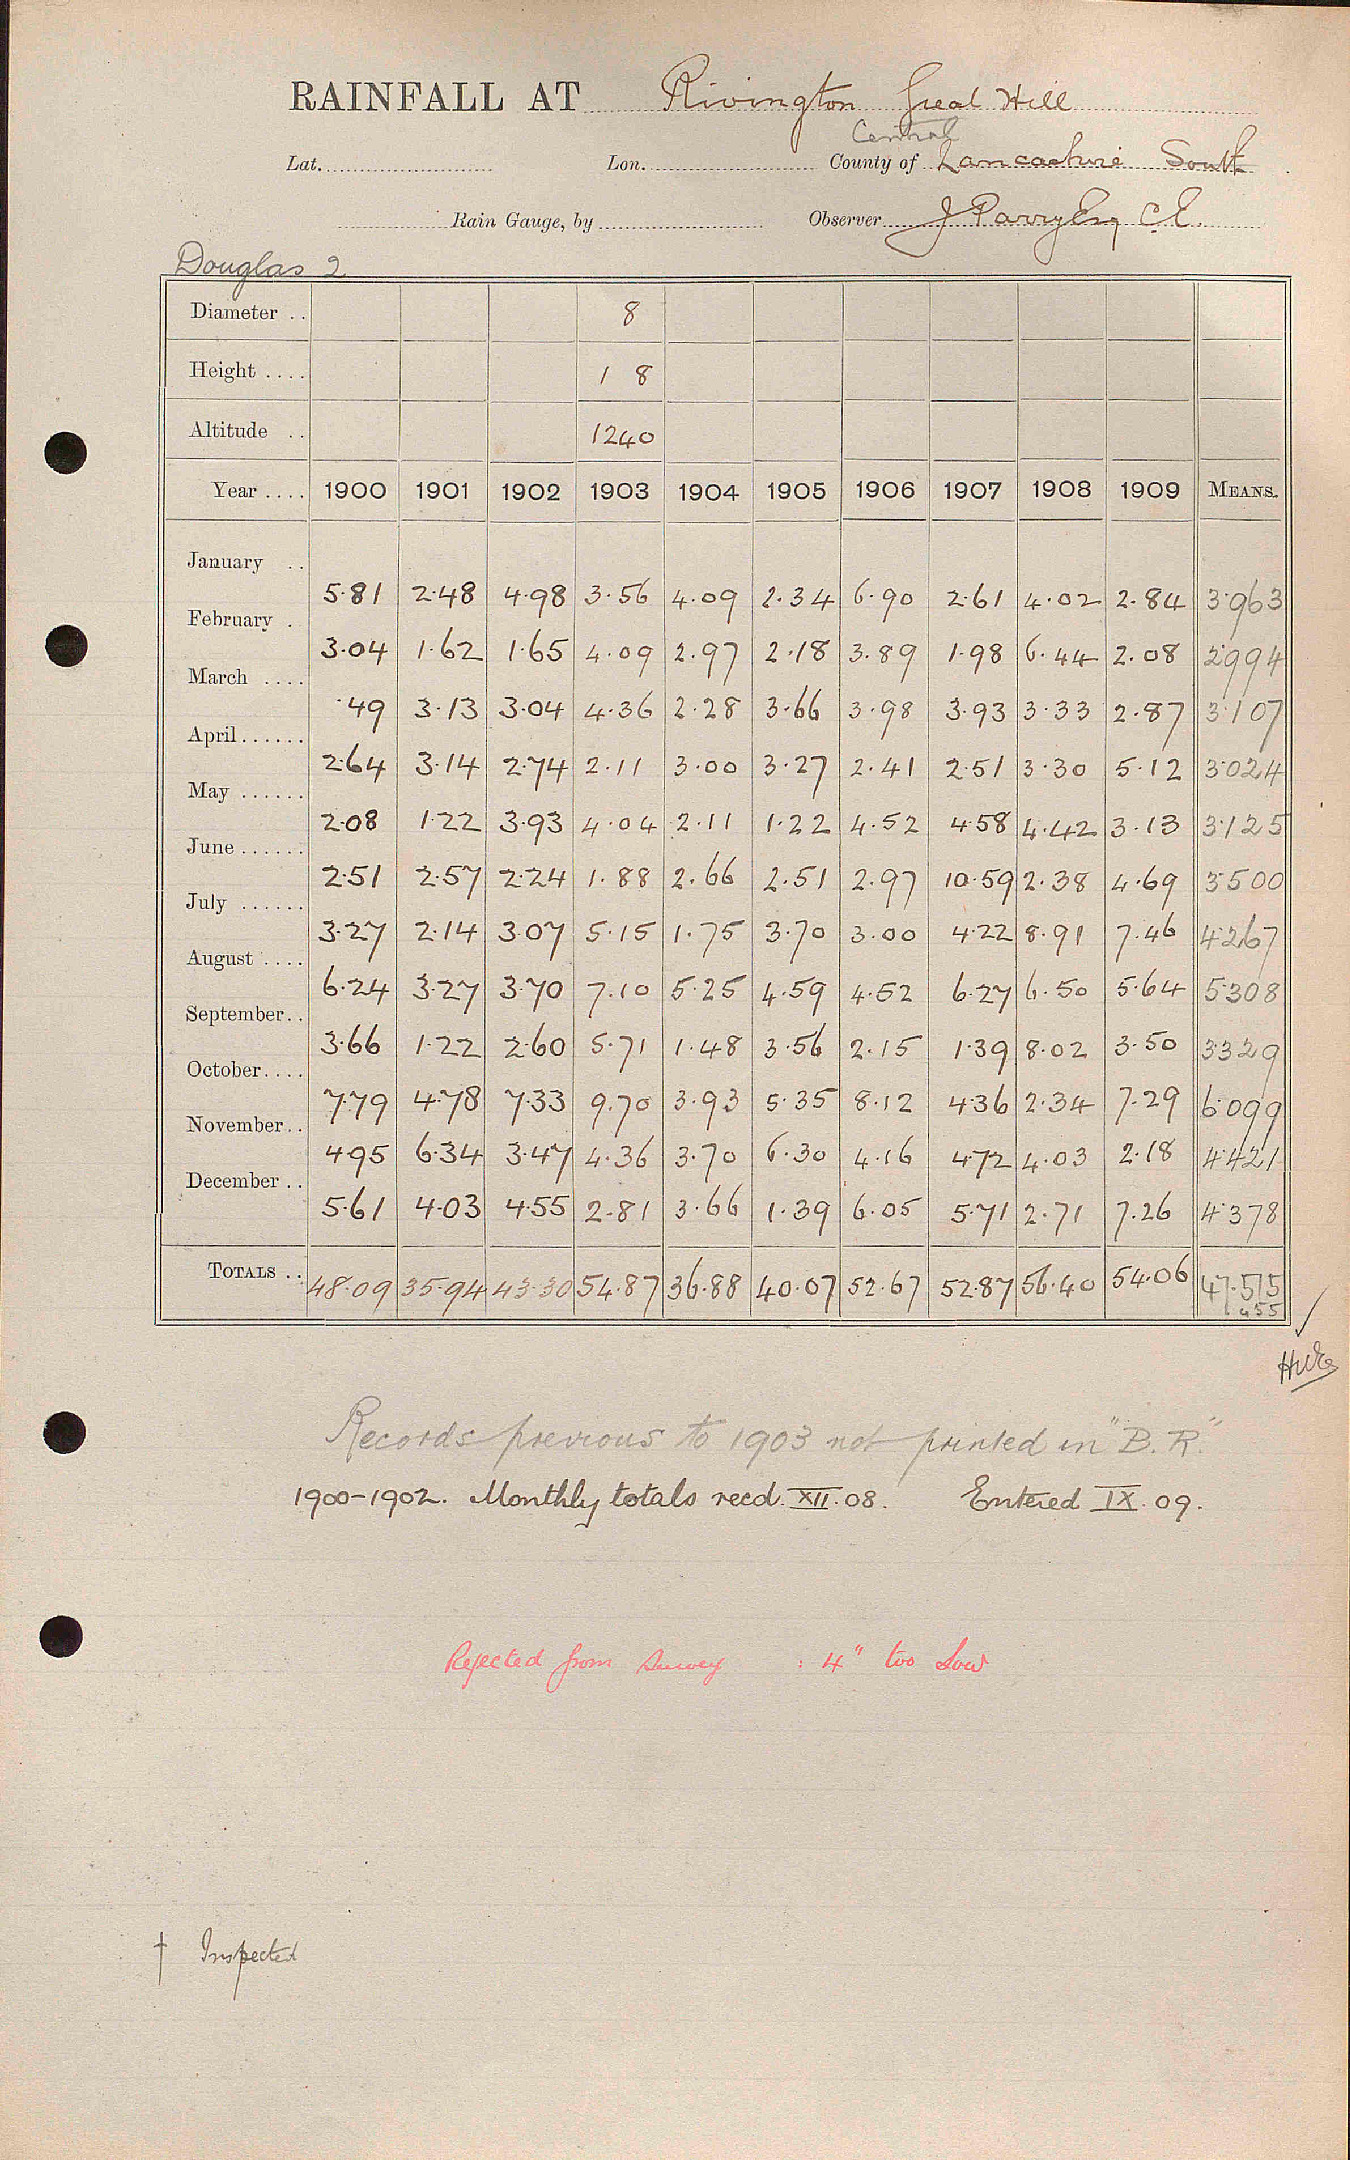 RAINFALL AT Rivington Great Hill
Central
Lat. Lon. County of Lancashire South
Rain Gauge, by Observer J Parry Esq C.E.
Douglas 2
Diameter .. 8
Height .... 1 8
Altitude .. 1240
Year .... 1900 1901 1902 1903 1904 1905 1906 1907 1908 1909 MEANS.
January .. 5.81 2.48 4.98 3.56 4.09 2.34 6.90 2.61 4.02 2.84 3.963
February . 3.04 1.62 1.65 4.09 2.97 2.18 3.89 1.98 6.44 2.08 2994
March .... .49 3.13 3.04 4.36 2.28 3.66 3.98 3.93 3.33 2.87 3.107
April...... 2.64 3.14 2.74 2.11 3.00 3.27 2.41 2.51 3.30 5.12 3024
May ...... 2.08 1.22 3.93 4.04 2.11 1.22 4.52 4.58 4.42 3.13 3125
June ...... 2.51 2.57 2.24 1.88 2.66 2.51 2.97 10.59 2.38 4.69 3500
July ...... 3.27 2.14 3.07 5.15 1.75 3.70 3.00 4.22 8.91 7.46 4267
August .... 6.24 3.27 3.70 7.10 5.25 4.59 4.52 6.27 6.50 5.64 5308
September.. 3.66 1.22 2.60 5.71 1.48 3.56 2.15 1.39 8.02 3.50 3329
October.... 7.79 4.78 7.33 9.70 3.93 5.35 8.12 4.36 2.34 7.29 6099
November.. 4.95 6.34 3.47 4.36 3.70 6.30 4.16 4.72 4.03 2.18 4421
December .. 5.61 4.03 4.55 2.81 3.66 1.39 6.05 5.71 2.71 7.26 4378
TOTALS .. 48.09 35.94 43.30 54.87 36.88 40.07 52.67 52.87 56.40 54.06 47.515
455
Records previous to 1903 not printed in "B. R."
1900-1902. Monthly totals recd. XII.08. Entered IX.09.
Rejected from Survey : 4" too Low
† Inspected